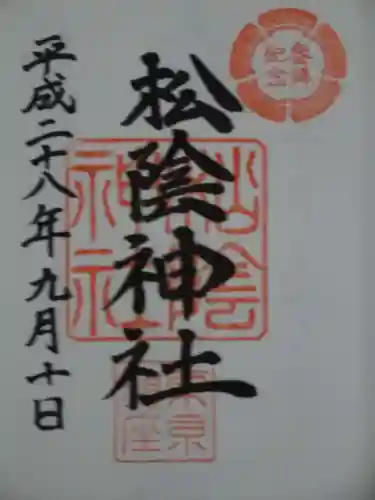 参拝
記念
松陰神社
松陰
神社
東京
平成二十八年九月十日